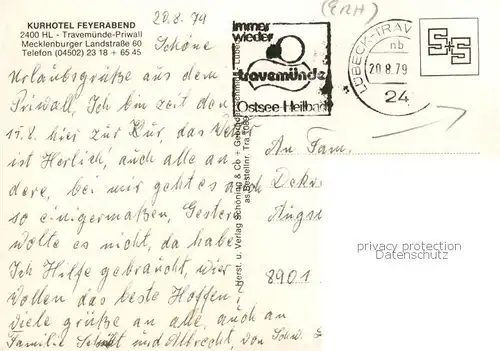 KURHOTEL FEYERABEND
2400 HL - Travemünde-Priwall
Mecklenburger Landstraße 60
Telefon (04502) 23 18 + 65 45
20.8.79
(ERH)
immer
wieder
travemünde
Ostsee-Heilbad
LÜBECK-TRAV
nb
20.8.79
24
S+S
Schöne
Urlaubsgrüße aus dem
Priwall, Ich bin zeit den
15.8. hier zur Kur, das Wetter
ist Herlich, auch alle an
dere, bei mir geht es auch
so einigermaßen, Gestern
wolte es nicht, da habe
Ich Hilfe gebraucht, wier
wollen das beste Hoffen,
viele grüße an alle, auch an
Familie und Albrecht, von
Herst. u. Verlag Schöning & Co + Lübeck
Bestellnr. Tra
An Fam.
Dekr
Augs
8901
privacy protection
AKPool.de